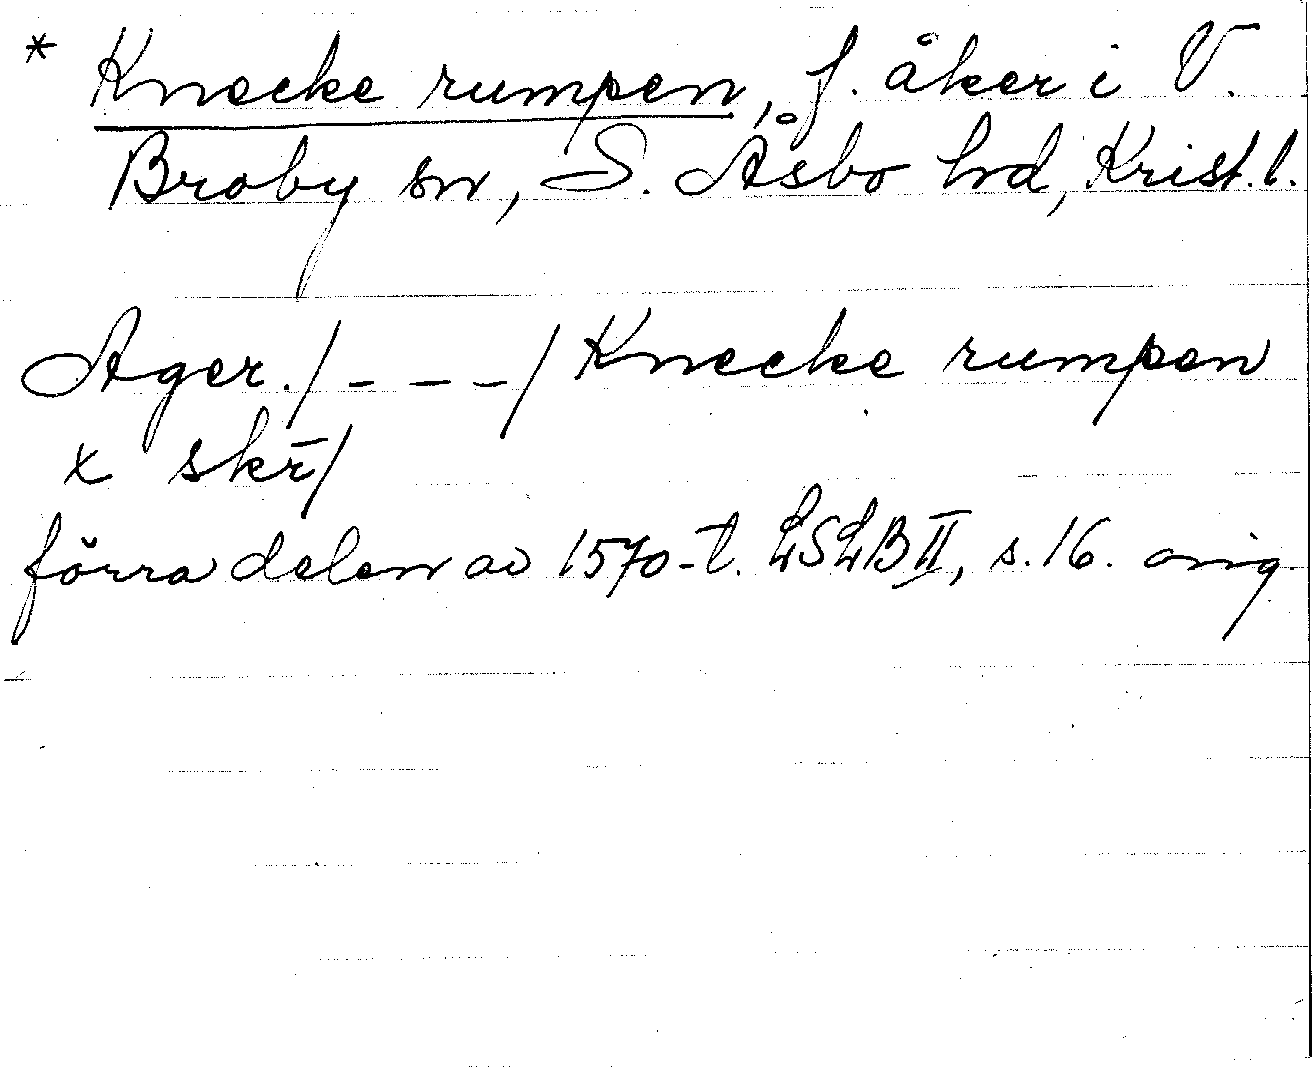 * Knecke rumpen, f. åker i V.
Broby sn, S. Åsbo hd, Krist. l.
Ager. /_ _ _/ Knecke rumpen
x skr̄/
förra delen av 1570-t. LSLB II, s. 16. orig